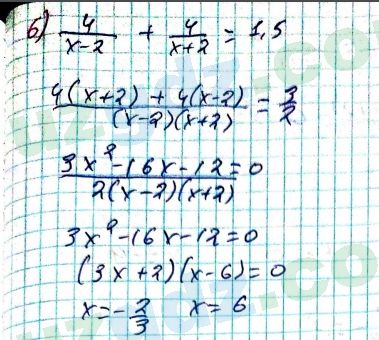 б) 4/(x-2) + 4/(x+2) = 1,5
(4(x+2) + 4(x-2))/((x-2)(x+2)) = 3/2
(3x²-16x-12=0)/(2(x-2)(x+2))
3x²-16x-12=0
(3x+2)(x-6)=0
x=-2/3 x=6